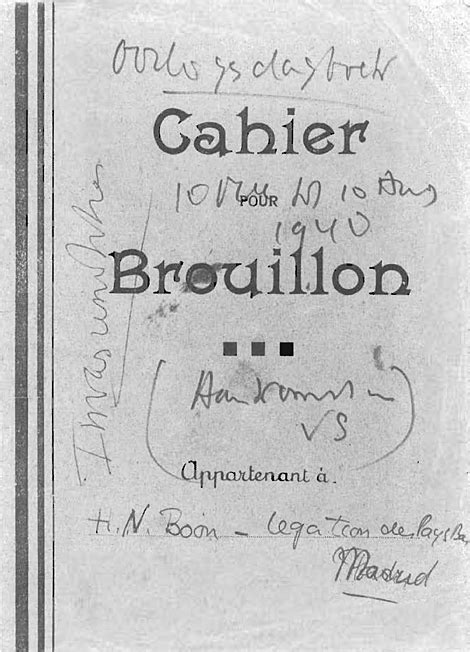 Oorlogsdagboek
Cahier
10 Mei tot 10 Aug
POUR
1940
Brouillon
(Aankomst in
VS)
Appartenant à.
H. N. Boon - Legation des Pays Bas
Madrid